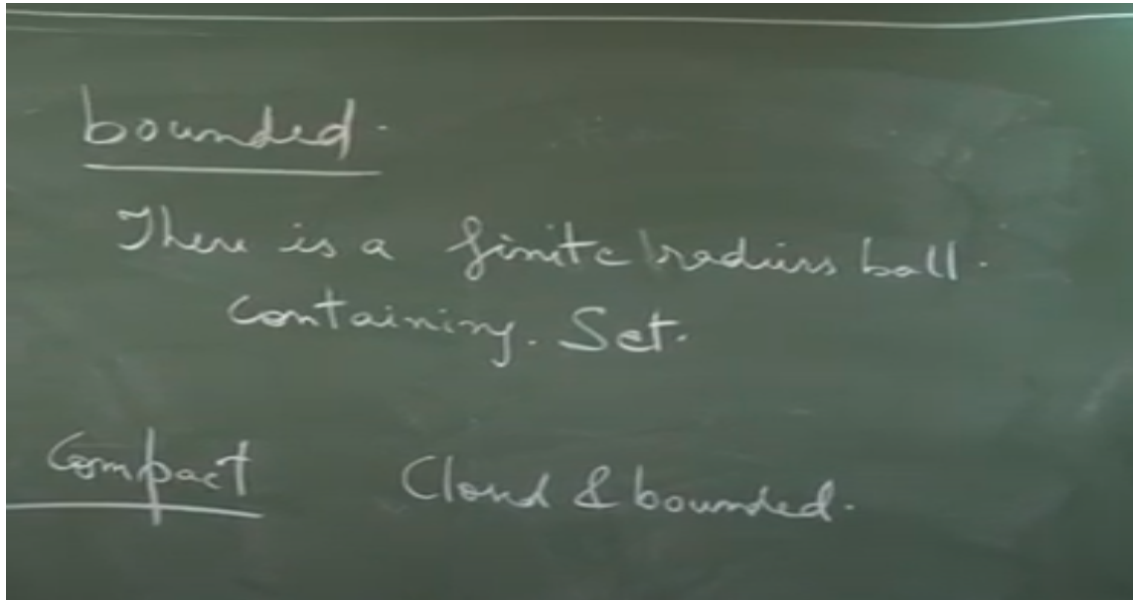 bounded.
There is a finite radius ball.
containing. Set.
Compact Closed & bounded.